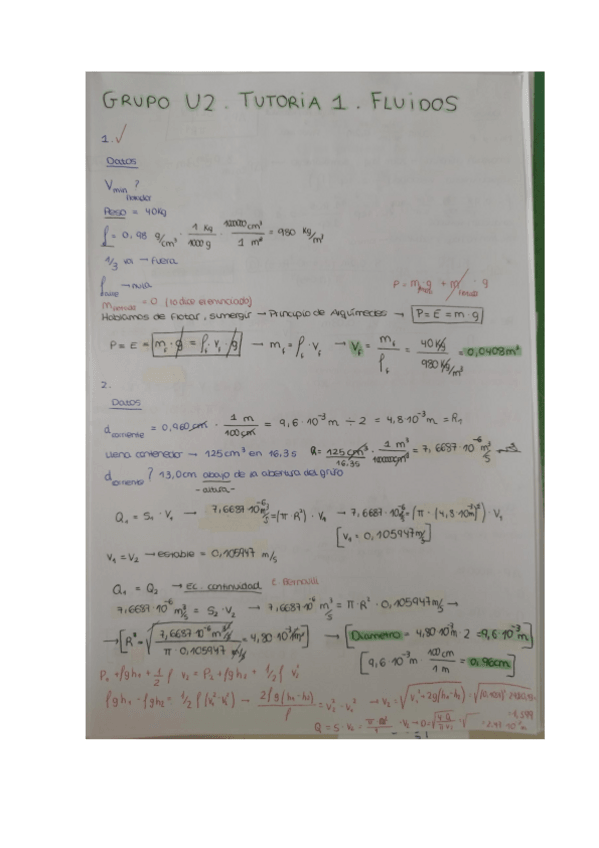 GRUPO U2. TUTORIA 1. FLUIDOS
1. ✓
Datos
Vmin flotador ?
Peso = 40Kg
ρ = 0,98 g/cm³ · 1 Kg / 1000 g · 1000000 cm³ / 1 m³ = 980 Kg/m³
1/3 va → fuera
→ nula
P = m · g + m · g
= 0 (lo dice el enunciado)
Hablamos de flotar, sumergir → Principio de Arquímedes → P = E = m · g
P = E = m_f · g = ρ_f · V_f · g → m_f = ρ_f · V_f → V_f = m_f / ρ_f = 40 Kg / 980 Kg/m³ = 0,0408 m³
2.
Datos
d corriente = 0,960 cm · 1 m / 100 cm = 9,6 · 10⁻³ m ÷ 2 = 4,8 · 10⁻³ m = R₁
Llena contenedor → 125 cm³ en 16,3 s Q = 125 cm³ / 16,3 s · 1 m³ / 1000000 cm³ = 7,6687 · 10⁻⁶ m³/s
d corriente ? 13,0cm abajo de la abertura del grifo
- altura -
Q₁ = S₁ · V₁ → 7,6687 · 10⁻⁶ m³/s = (π · R²) · V₁ → 7,6687 · 10⁻⁶ = (π · (4,8 · 10⁻³)²) · V₁
[V₁ = 0,105947 m/s]
V₁ = V₂ → estable = 0,105947 m/s
Q₁ = Q₂ → Ec. continuidad E. Bernoulli
7,6687 · 10⁻⁶ m³/s = S₂ · V₂ → 7,6687 · 10⁻⁶ m³/s = π · R² · 0,105947 m/s →
→ [R = √ 7,6687 · 10⁻⁶ m³/s / π · 0,105947 m/s = 4,80 · 10⁻³ m] → [Diametro = 4,80 · 10⁻³ m · 2 = 9,6 · 10⁻³ m]
[9,6 · 10⁻³ m · 100 cm / 1 m = 0,96cm]
P₁ + ρgh₁ + 1/2 ρ v₁ = P₂ + ρgh₂ + 1/2 ρ v₂²
ρgh₁ - ρgh₂ = 1/2 ρ (v₂² - v₁²) → 2ρg(h₁-h₂) / ρ = v₂² - v₁² → v₂ = √ v₁² + 2g(h₁-h₂)
Q = S · v₂